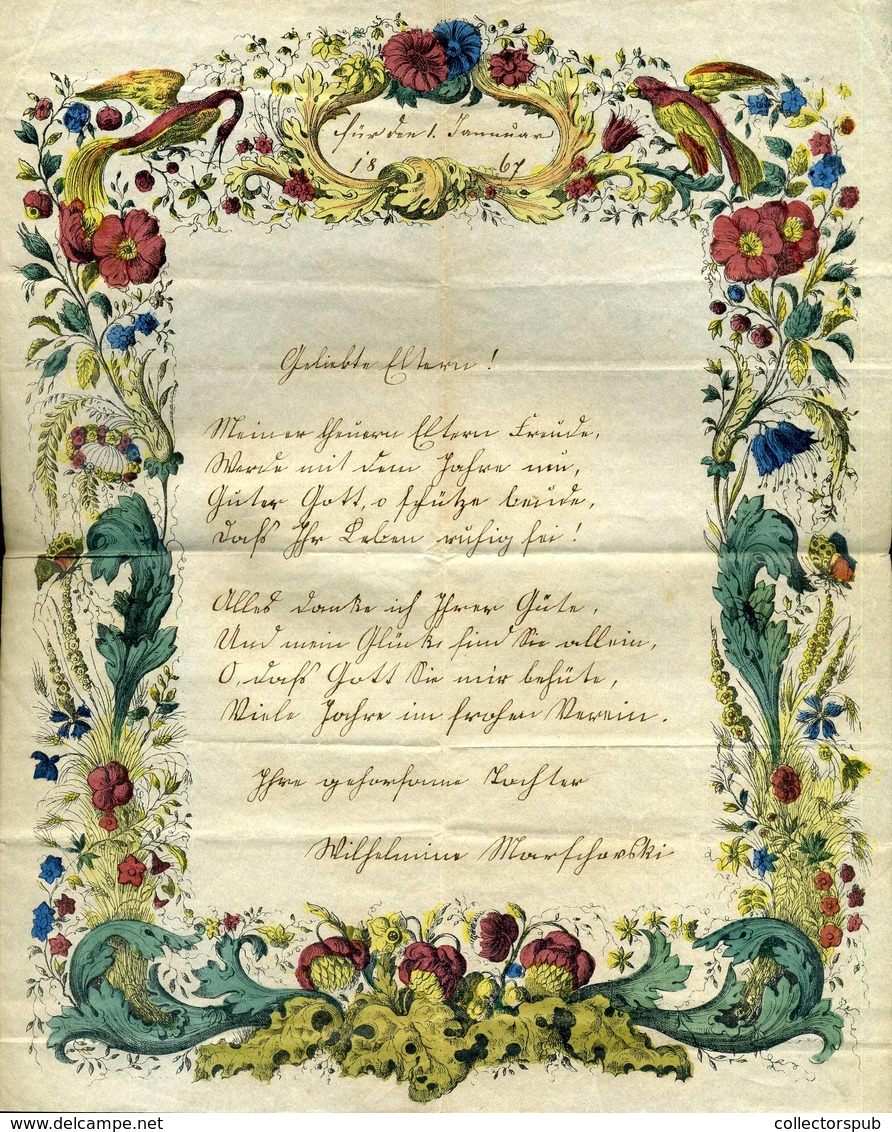 Für den 1. Januar
18 67
Geliebte Eltern!
Meiner theuern Eltern Freude,
Werde mit dem Jahre neu,
Guter Gott, o schütze beide,
Dass Ihr Leben ruhig sei!
Alles danke ich Ihrer Güte,
Und mein Glück sind Sie allein,
O, dass Gott Sie mir behüte,
Viele Jahre im frohen Verein.
Ihre gehorsame Tochter
Wilhelmine Marschovski
www.delcampe.net
collectorspub